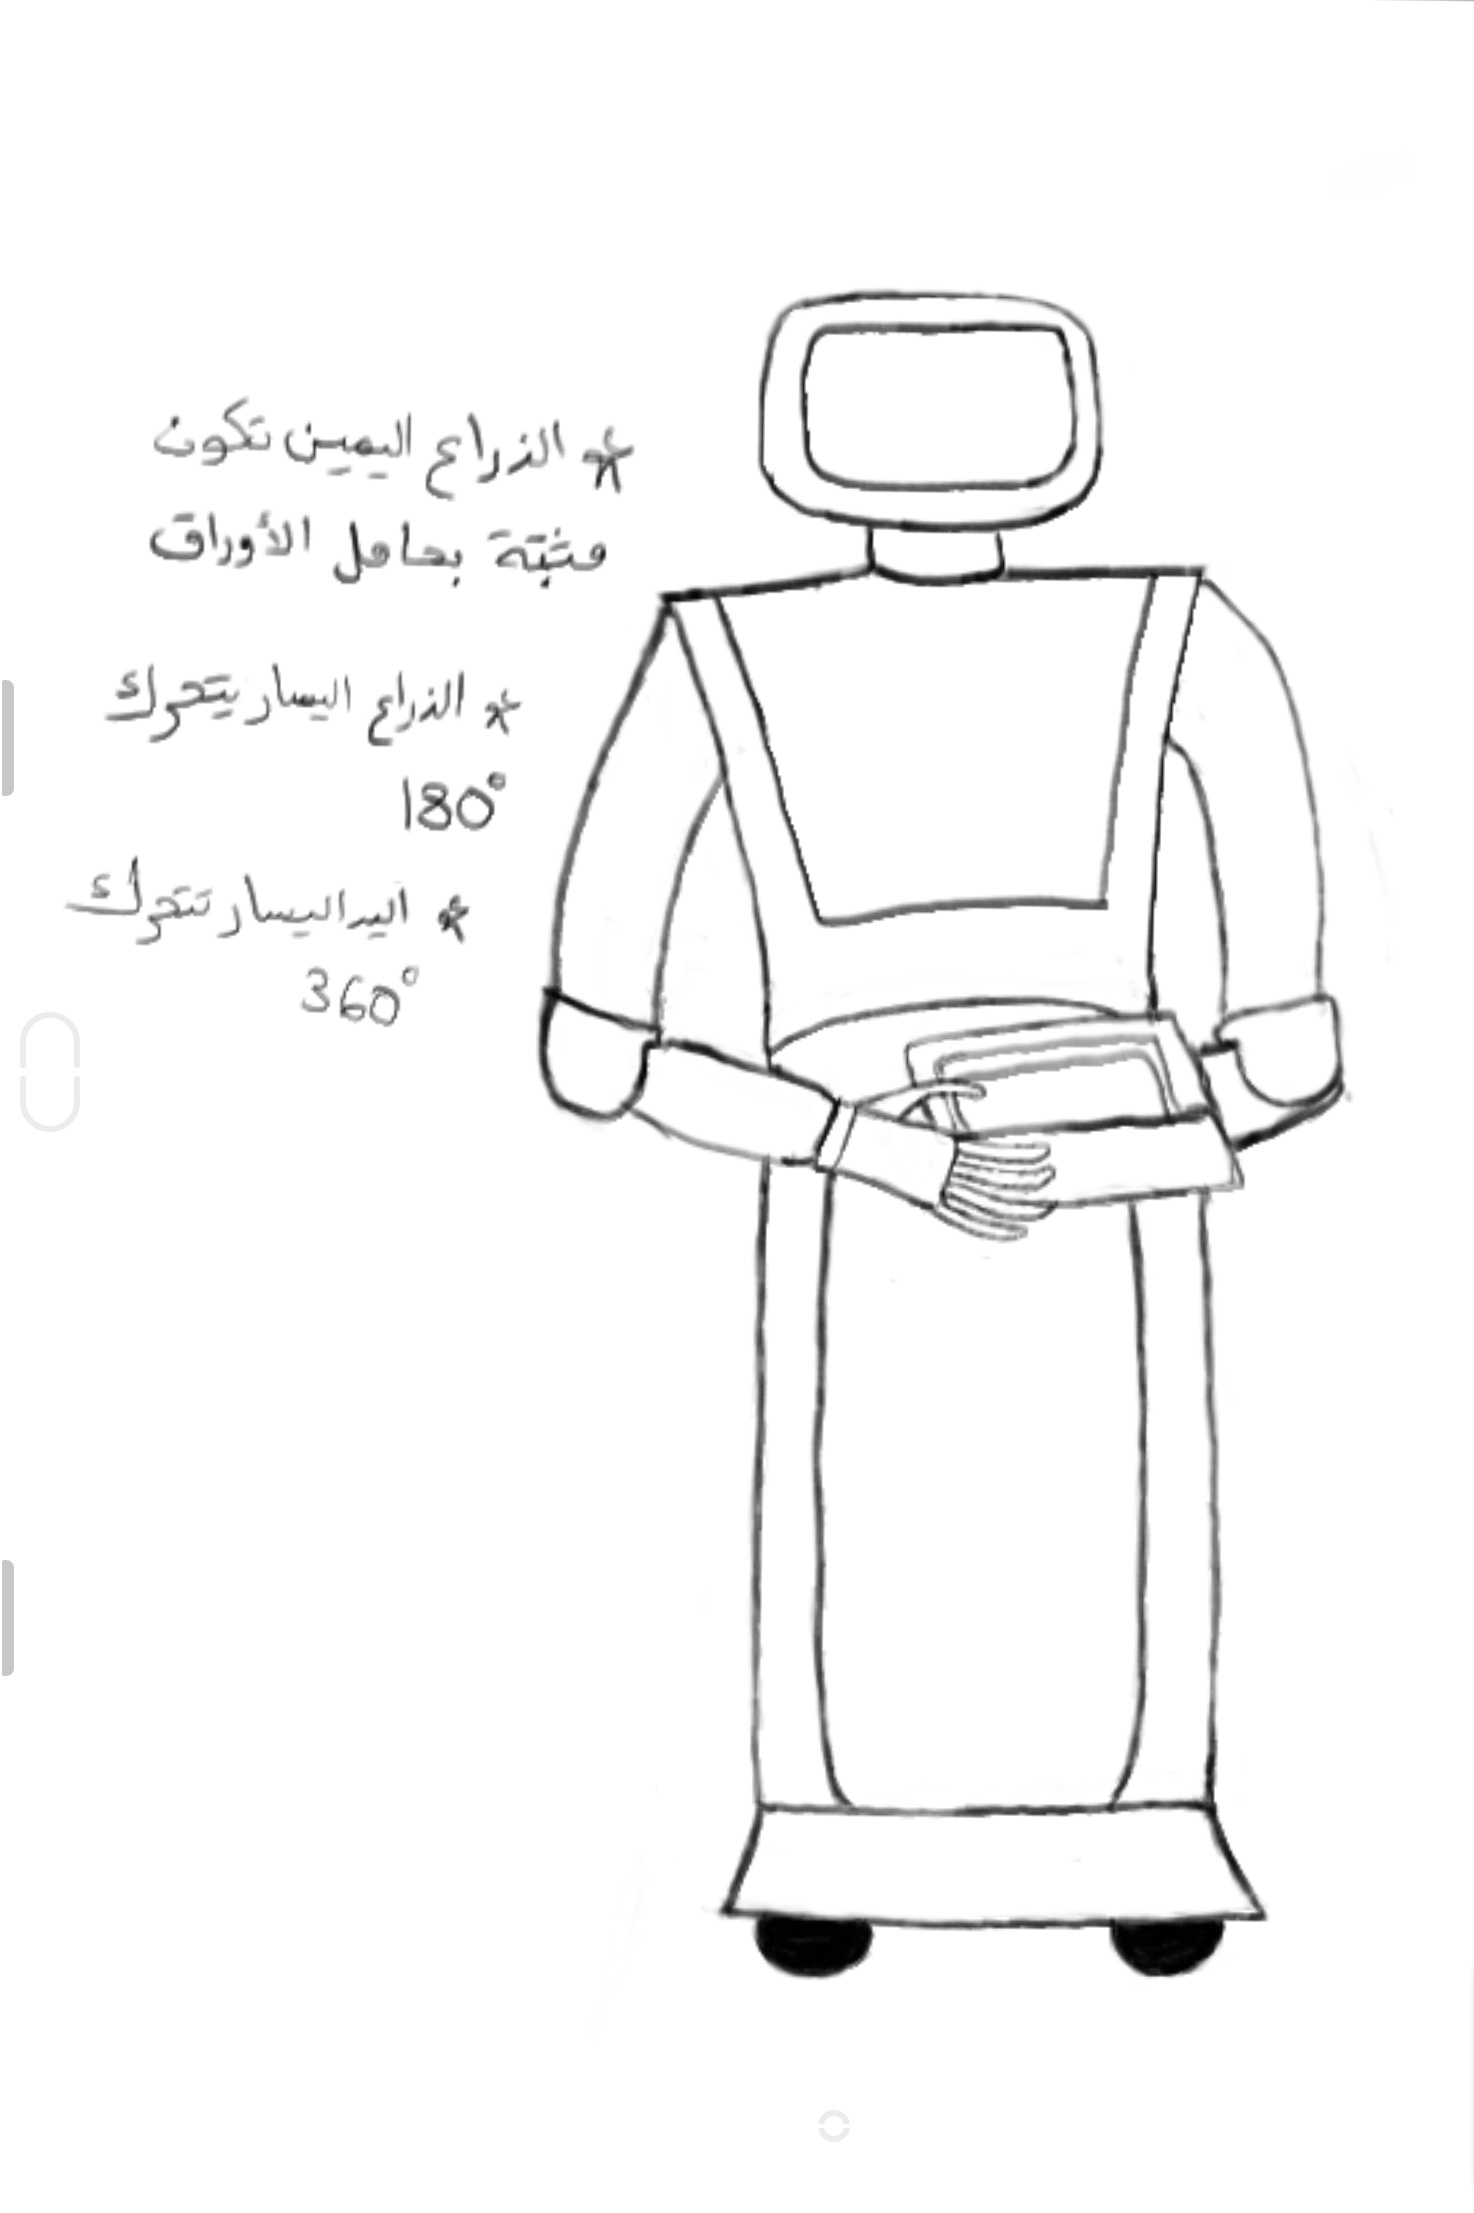 * الذراع اليمين تكون
مثبتة بحامل الأوراق
* الذراع اليسار يتحرك
180°
* اليد اليسار تتحرك
360°